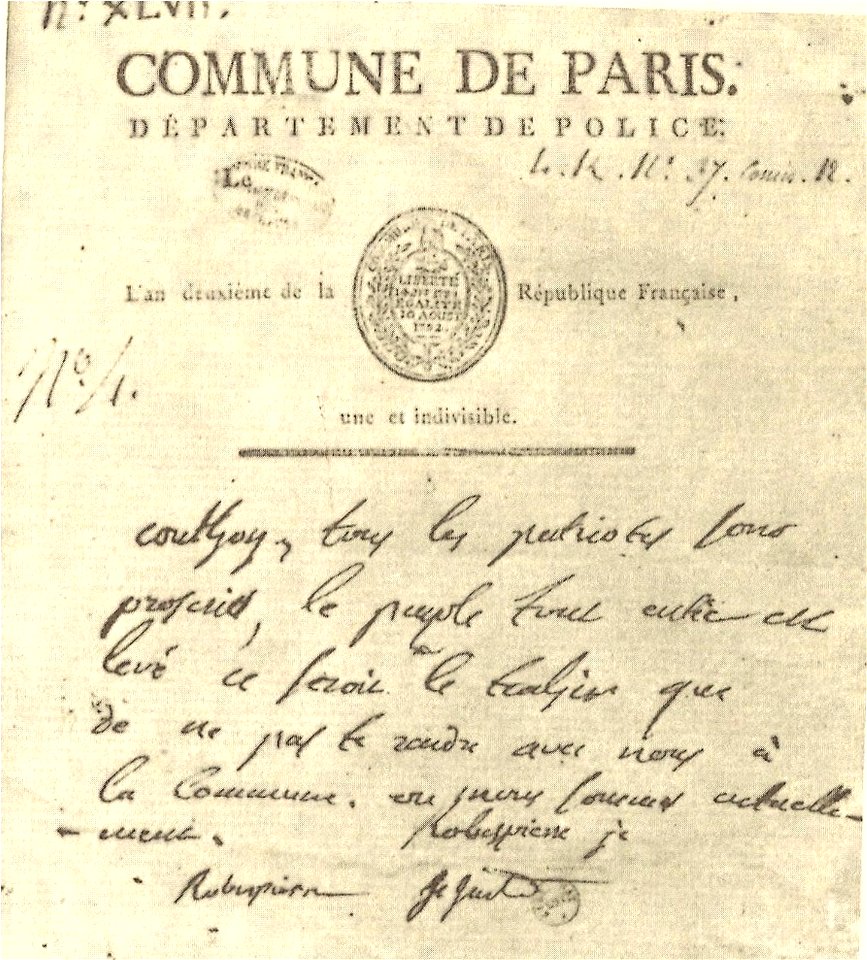 N.º XLVII.
COMMUNE DE PARIS.
DÉPARTEMENT DE POLICE.
Le
L. R. N.º 37. Comis. R.
L'an deuxième de la République Française,
LIBERTÉ
ÉGALITÉ
10 AOUST
1792
Nº 1.
une et indivisible.
couthon, tous les patriotes sont
proscrits, le peuple tout entier est
levé ce seroit le trahir que
de ne pas te rendre avec nous à
la Commune. ou nous sommes actuelle-
-ment. Robespierre je
Robespierre St Just